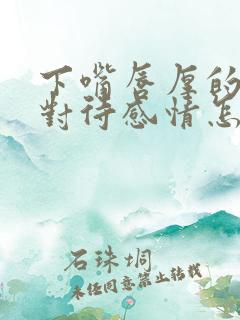 下嘴唇厚的
對待感情怎
石珠垌
未经同意禁止转载